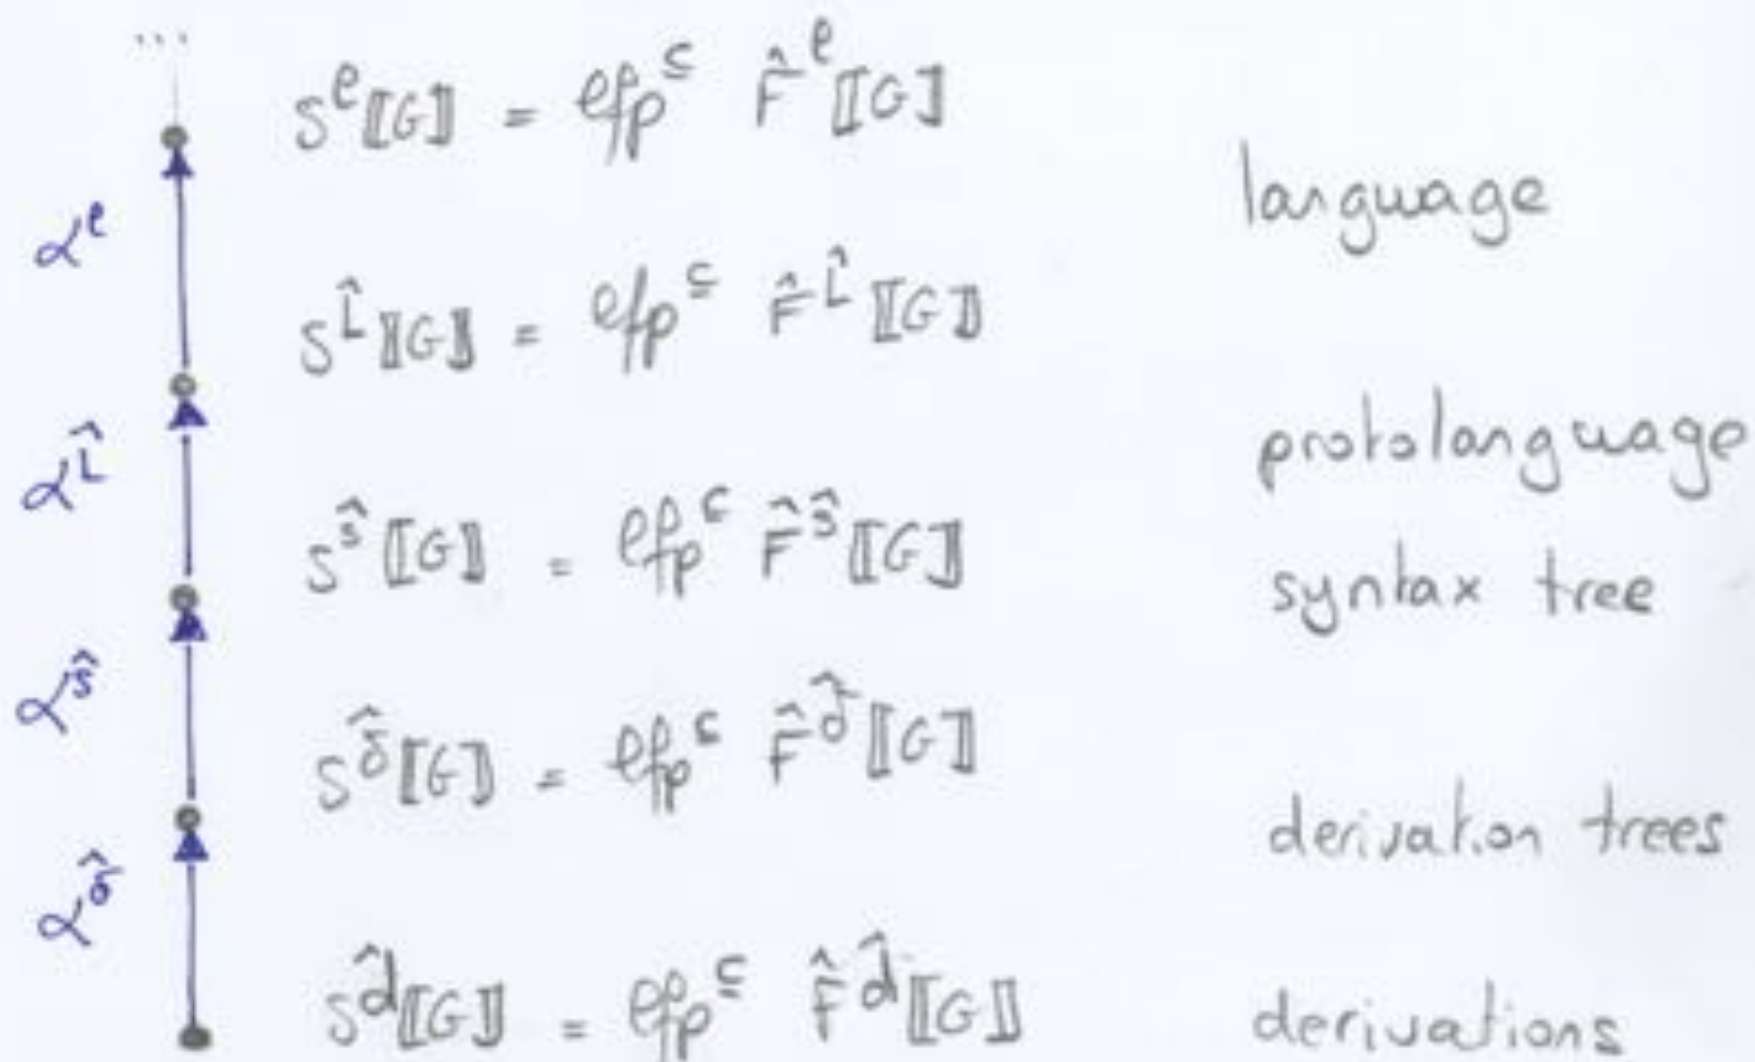 ...
S^ℓ⟦G⟧ = ℓfp^⊆ F̂^ℓ⟦G⟧
language
α^ℓ
S^L̂⟦G⟧ = ℓfp^⊆ F̂^L̂⟦G⟧
protolanguage
α^L̂
S^ŝ⟦G⟧ = ℓfp^⊆ F̂^ŝ⟦G⟧
syntax tree
α^ŝ
S^δ̂⟦G⟧ = ℓfp^⊆ F̂^δ̂⟦G⟧
derivation trees
α^δ̂
S^d̂⟦G⟧ = ℓfp^⊆ F̂^d̂⟦G⟧
derivations